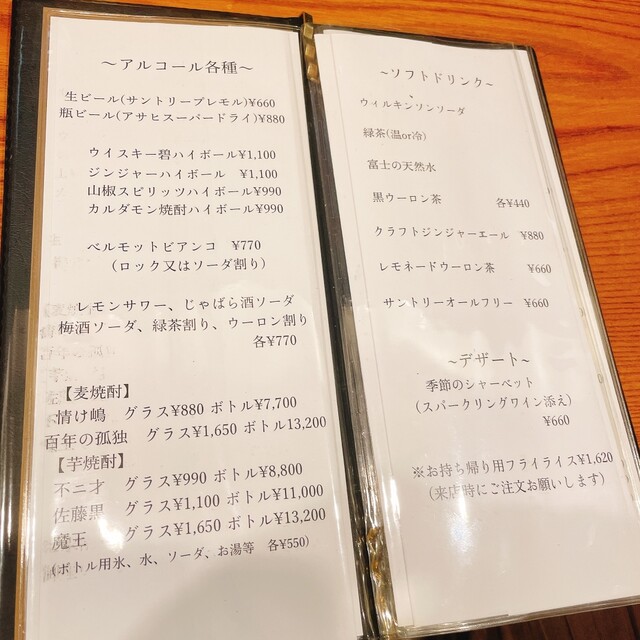 ～アルコール各種～
生ビール(サントリープレモル)¥660
瓶ビール(アサヒスーパードライ)¥880
ウイスキー碧ハイボール¥1,100
ジンジャーハイボール ¥1,100
山椒スピリッツハイボール¥990
カルダモン焼酎ハイボール¥990
ベルモットビアンコ ¥770
(ロック又はソーダ割り)
レモンサワー、じゃばら酒ソーダ
梅酒ソーダ、緑茶割り、ウーロン割り
各¥770
【麦焼酎】
情け嶋 グラス¥880 ボトル¥7,700
百年の孤独 グラス¥1,650 ボトル13,200
【芋焼酎】
不二才 グラス¥990 ボトル¥8,800
佐藤黒 グラス¥1,100 ボトル¥11,000
魔王 グラス¥1,650 ボトル¥13,200
(ボトル用氷、水、ソーダ、お湯等 各¥550)
~ソフトドリンク~
ウィルキンソンソーダ
緑茶(温or冷)
富士の天然水
黒ウーロン茶 各¥440
クラフトジンジャーエール ¥880
レモネードウーロン茶 ¥660
サントリーオールフリー ¥660
~デザート~
季節のシャーベット
(スパークリングワイン添え)
¥660
※お持ち帰り用フライライス¥1,620
(来店時にご注文お願いします)